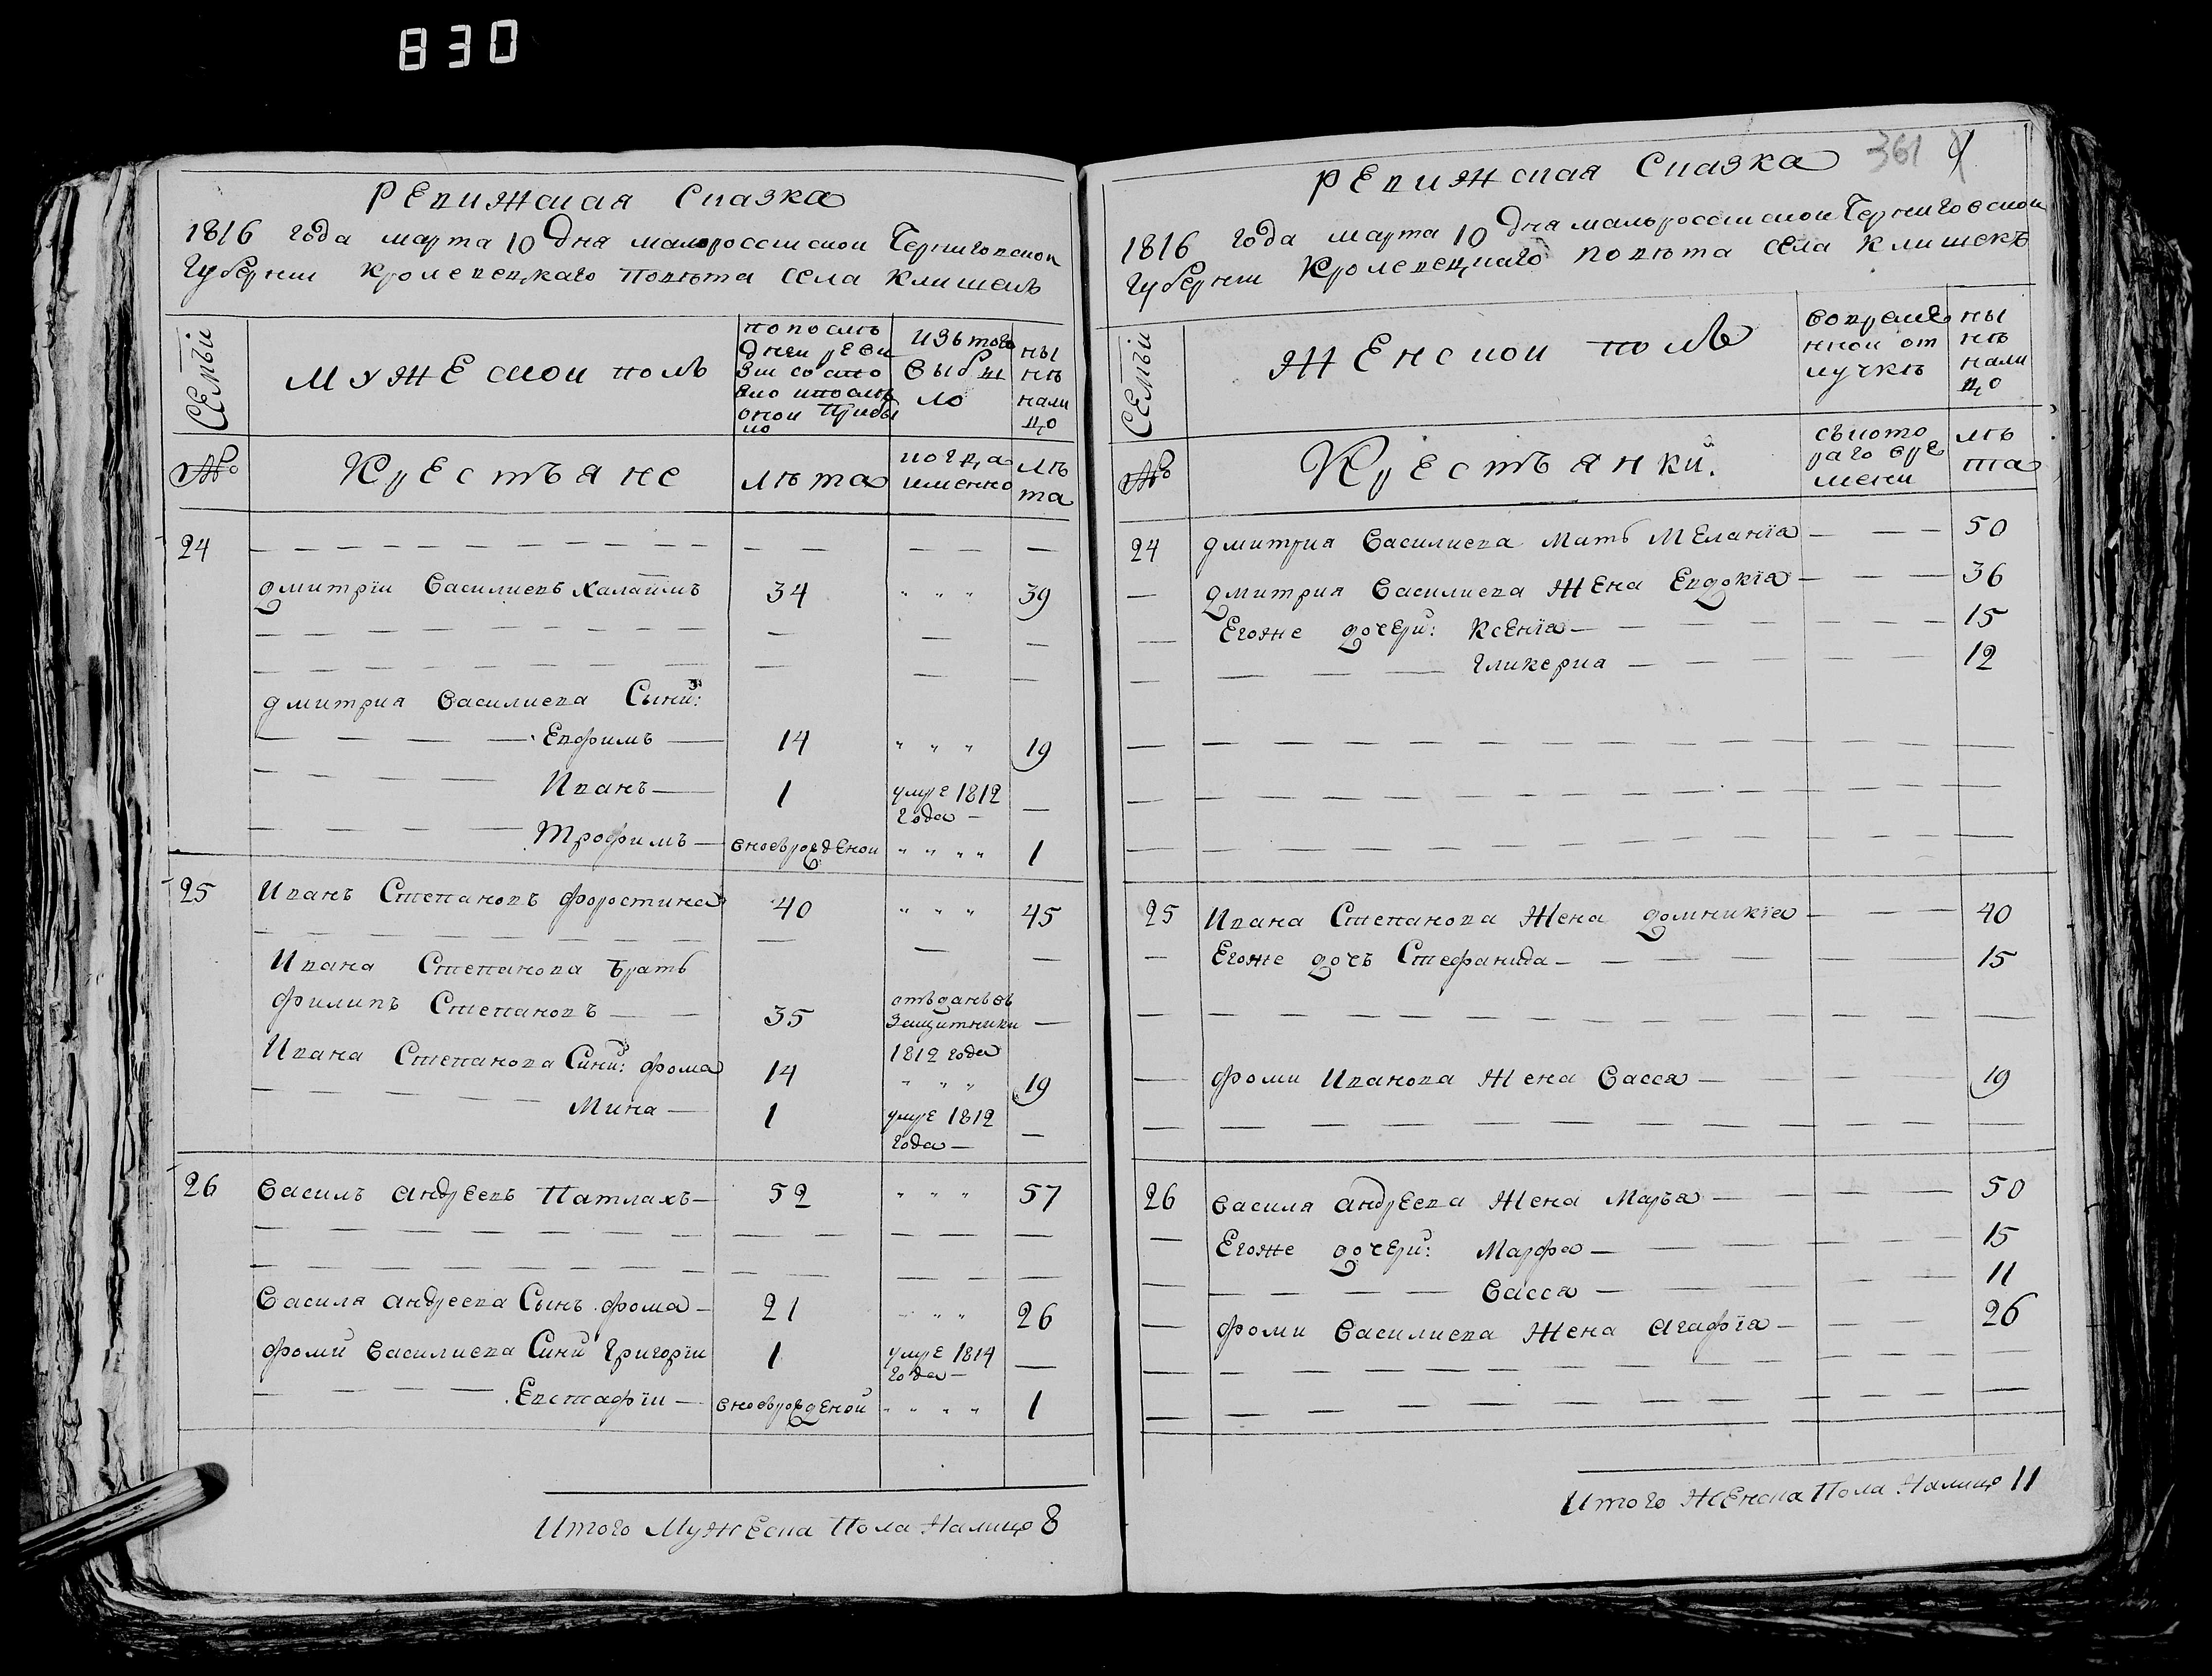 830
Ревижская Сказка
1816 года марта 10 дня малороссийской Черниговской
Губернии Кролевецкаго повѣта села Клишекъ
Семьи
Мужеской полъ
по послѣ
дней реви
зии состо
яло и послѣ
оной прибы
ло
изъ того
выбы
ло
ны
нѣ
нали
цо
№
Крестьяне
лѣта
когда
именно
лѣ
та
24
Дмитрїи Василиевъ
34
" " "
39
Дмитрия Василиева Сыни:
Евфимъ
14
" " "
19
Иванъ
1
умре 1812
года
Трофимъ
вновьрожденои
" " " "
1
25
Иванъ Степановъ Форостина
40
" " "
45
Ивана Степанова братъ
Филипъ Степановъ
35
отъданъ въ
защитники
1812 года
Ивана Степанова Сини: Фома
14
" " "
19
Мина
1
умре 1812
года
26
Василь Андреевъ Патлахъ
52
" " "
57
Василя Андреева Сынъ Фома
21
" " "
26
Фоми Василиева Сини Григорїи
1
умре 1814
года
Евстафїи
вновьрожденой
" " " "
1
Итого Мужеска Пола Налицо 8
361
Ревижская Сказка
1816 года марта 10 дня малороссийской Черниговской
Губернии Кролевецкаго повѣта села Клишекъ
Семьи
Женской полъ
во времѣ
нной от
лучкѣ
ны
нѣ
нали
цо
№
Крестьянки.
съ кото
раго вре
мени
лѣ
та
24
Дмитрия Василиева Мать Меланїа
50
Дмитрия Василиева Жена Евдокїа
36
Егоже дочери: Ксенїа
15
Гликериа
12
25
Ивана Степанова Жена Домникїа
40
Егоже дочъ Стефанида
15
Фоми Иванова Жена Васса
19
26
Василя Андреева Жена Марья
50
Егоже дочери: Марфа
15
Васса
11
Фоми Василиева Жена Агафїа
26
Итого Женска Пола Налицо 11